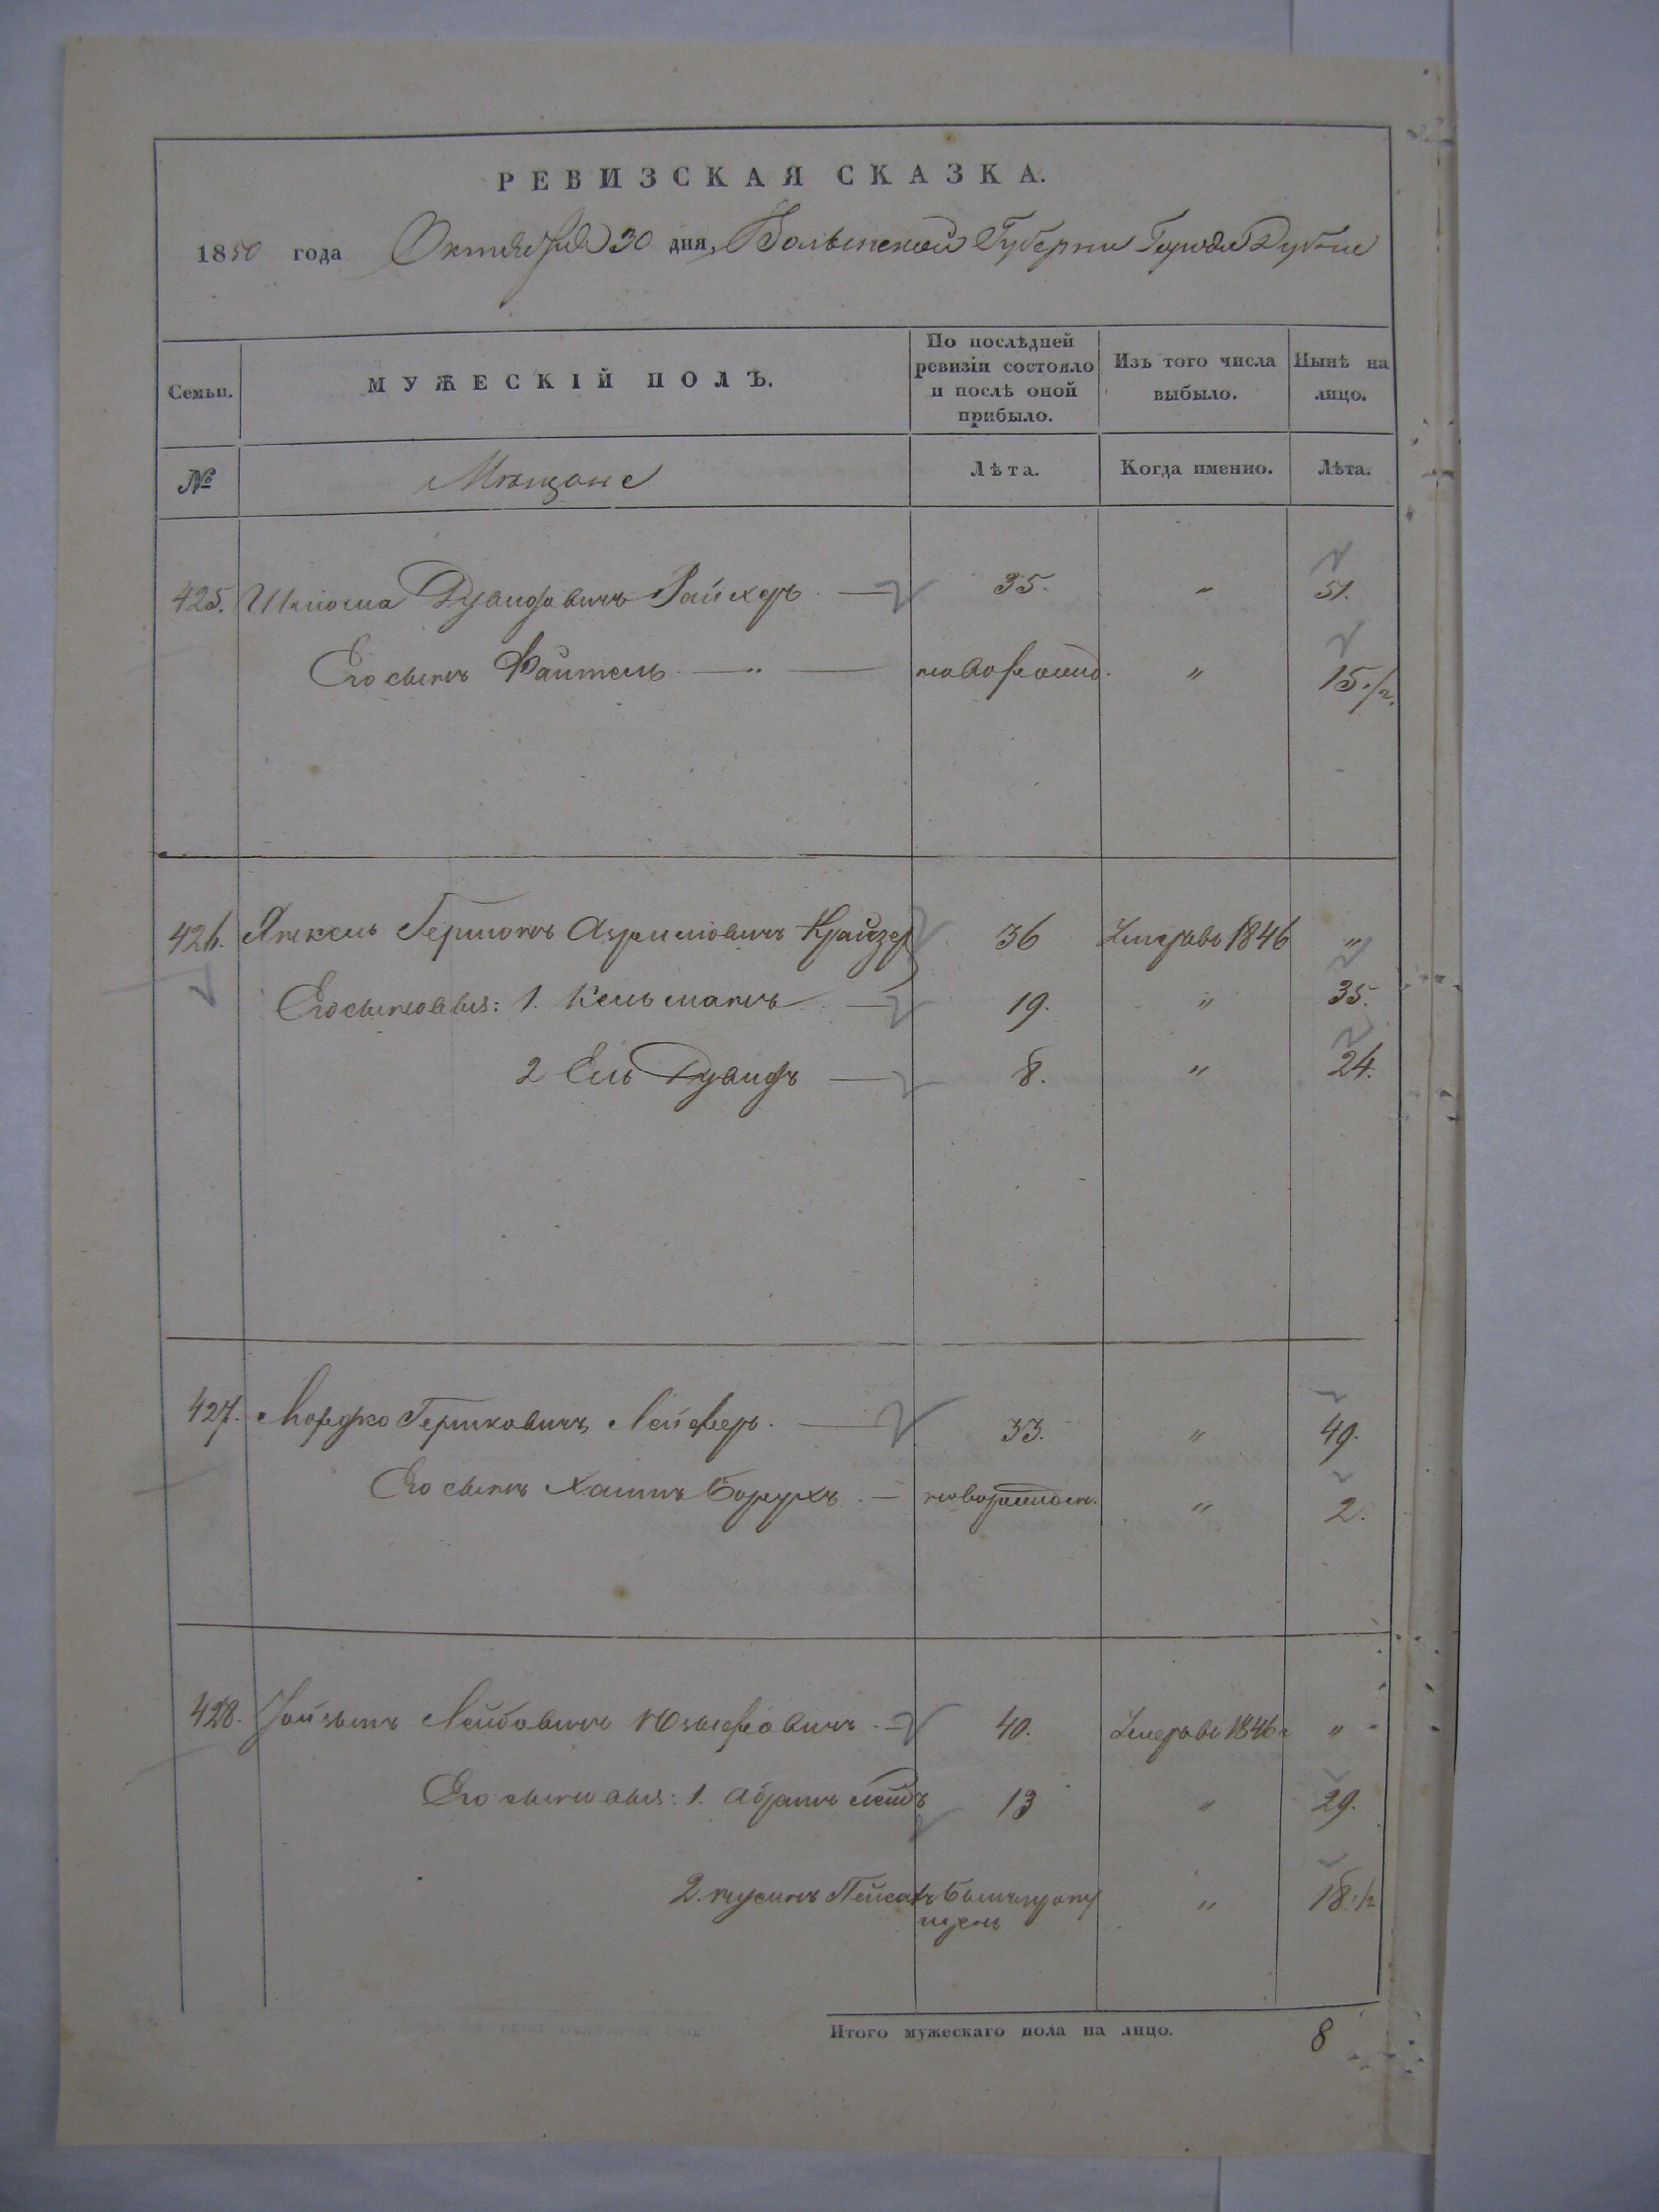 РЕВИЗСКАЯ СКАЗКА.
1850 года Октября 30 дня, Волынской Губернии Города Дубна
Семьи.
МУЖЕСКІЙ ПОЛЪ.
По послѣдней
ревизіи состояло
и послѣ оной
прибыло.
Изъ того числа
выбыло.
Нынѣ на
лицо.
№
Мѣщане
Лѣта.
Когда именно.
Лѣта.
425. Шліома Дувидовичъ 35. " 51.
Его сынъ Файтель — " — новорожд. " 15 1/2.
426. Янкель Гершонъ Крайзер 36 Умеръ въ 1846 "
Его сыновья: 1. Кельманъ — 19. " 35.
2 Ель Дувидъ — 8. " 24.
427. Мордко Гершковичъ Лейферъ. — 33. " 49.
Его сынъ Хаимъ Борухъ. — новорожден. " 2.
428. Лейбовичъ Юзефовичъ. — 40. Умеръ въ 1846 г "
Его сыновья: 1. Абрамъ Лейбъ 13 " 29.
2. Нусинъ Пейсахъ Былъ пропу
щенъ " 18 1/2
Итого мужескаго пола на лицо. 8